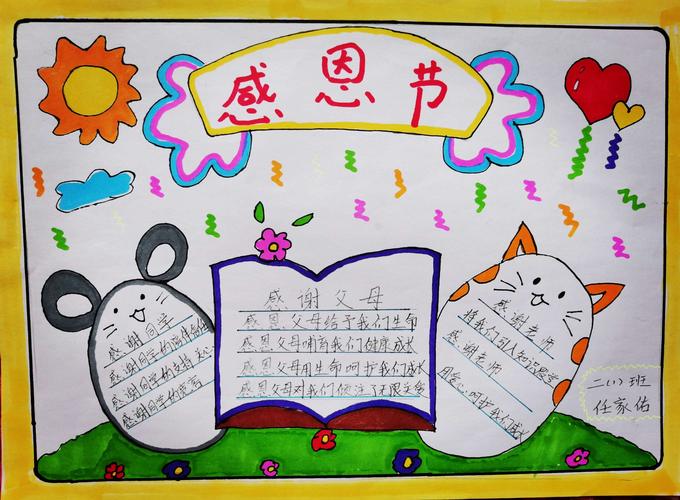 感恩节
感谢同学
感谢同学的陪伴
感谢同学的支持
感谢同学的宽容
感谢父母
感恩父母给予我们生命
感恩父母哺育我们健康成长
感恩父母用生命呵护我们成长
感恩父母对我们倾注了无限
感谢老师
感谢老师
用爱心呵护我们成长
二(1)班
任家佑